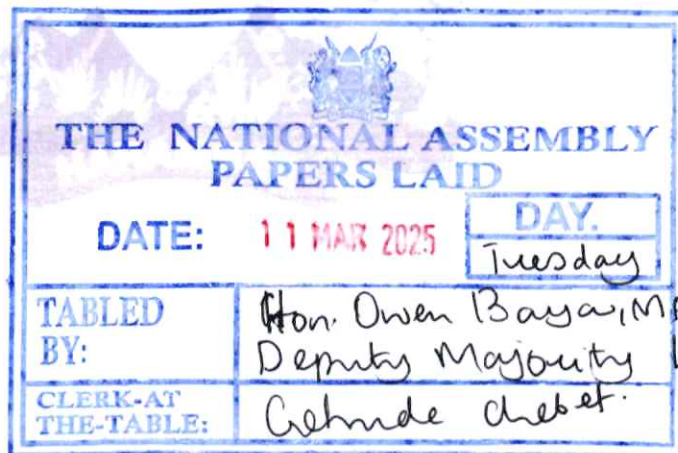 THE NATIONAL ASSEMBLY
PAPERS LAID
DATE: 11 MAR 2025
DAY.
Tuesday
TABLED BY:
Hon. Owen Baya, M
Deputy Majority
CLERK-AT THE-TABLE:
Getrude Chebet.